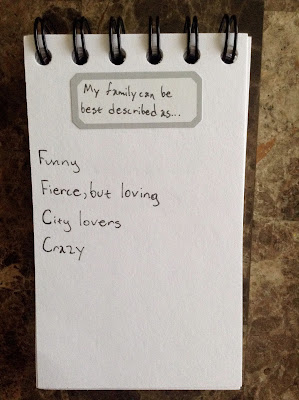 My family can be
best described as...
Funny
Fierce, but loving
City lovers
Crazy